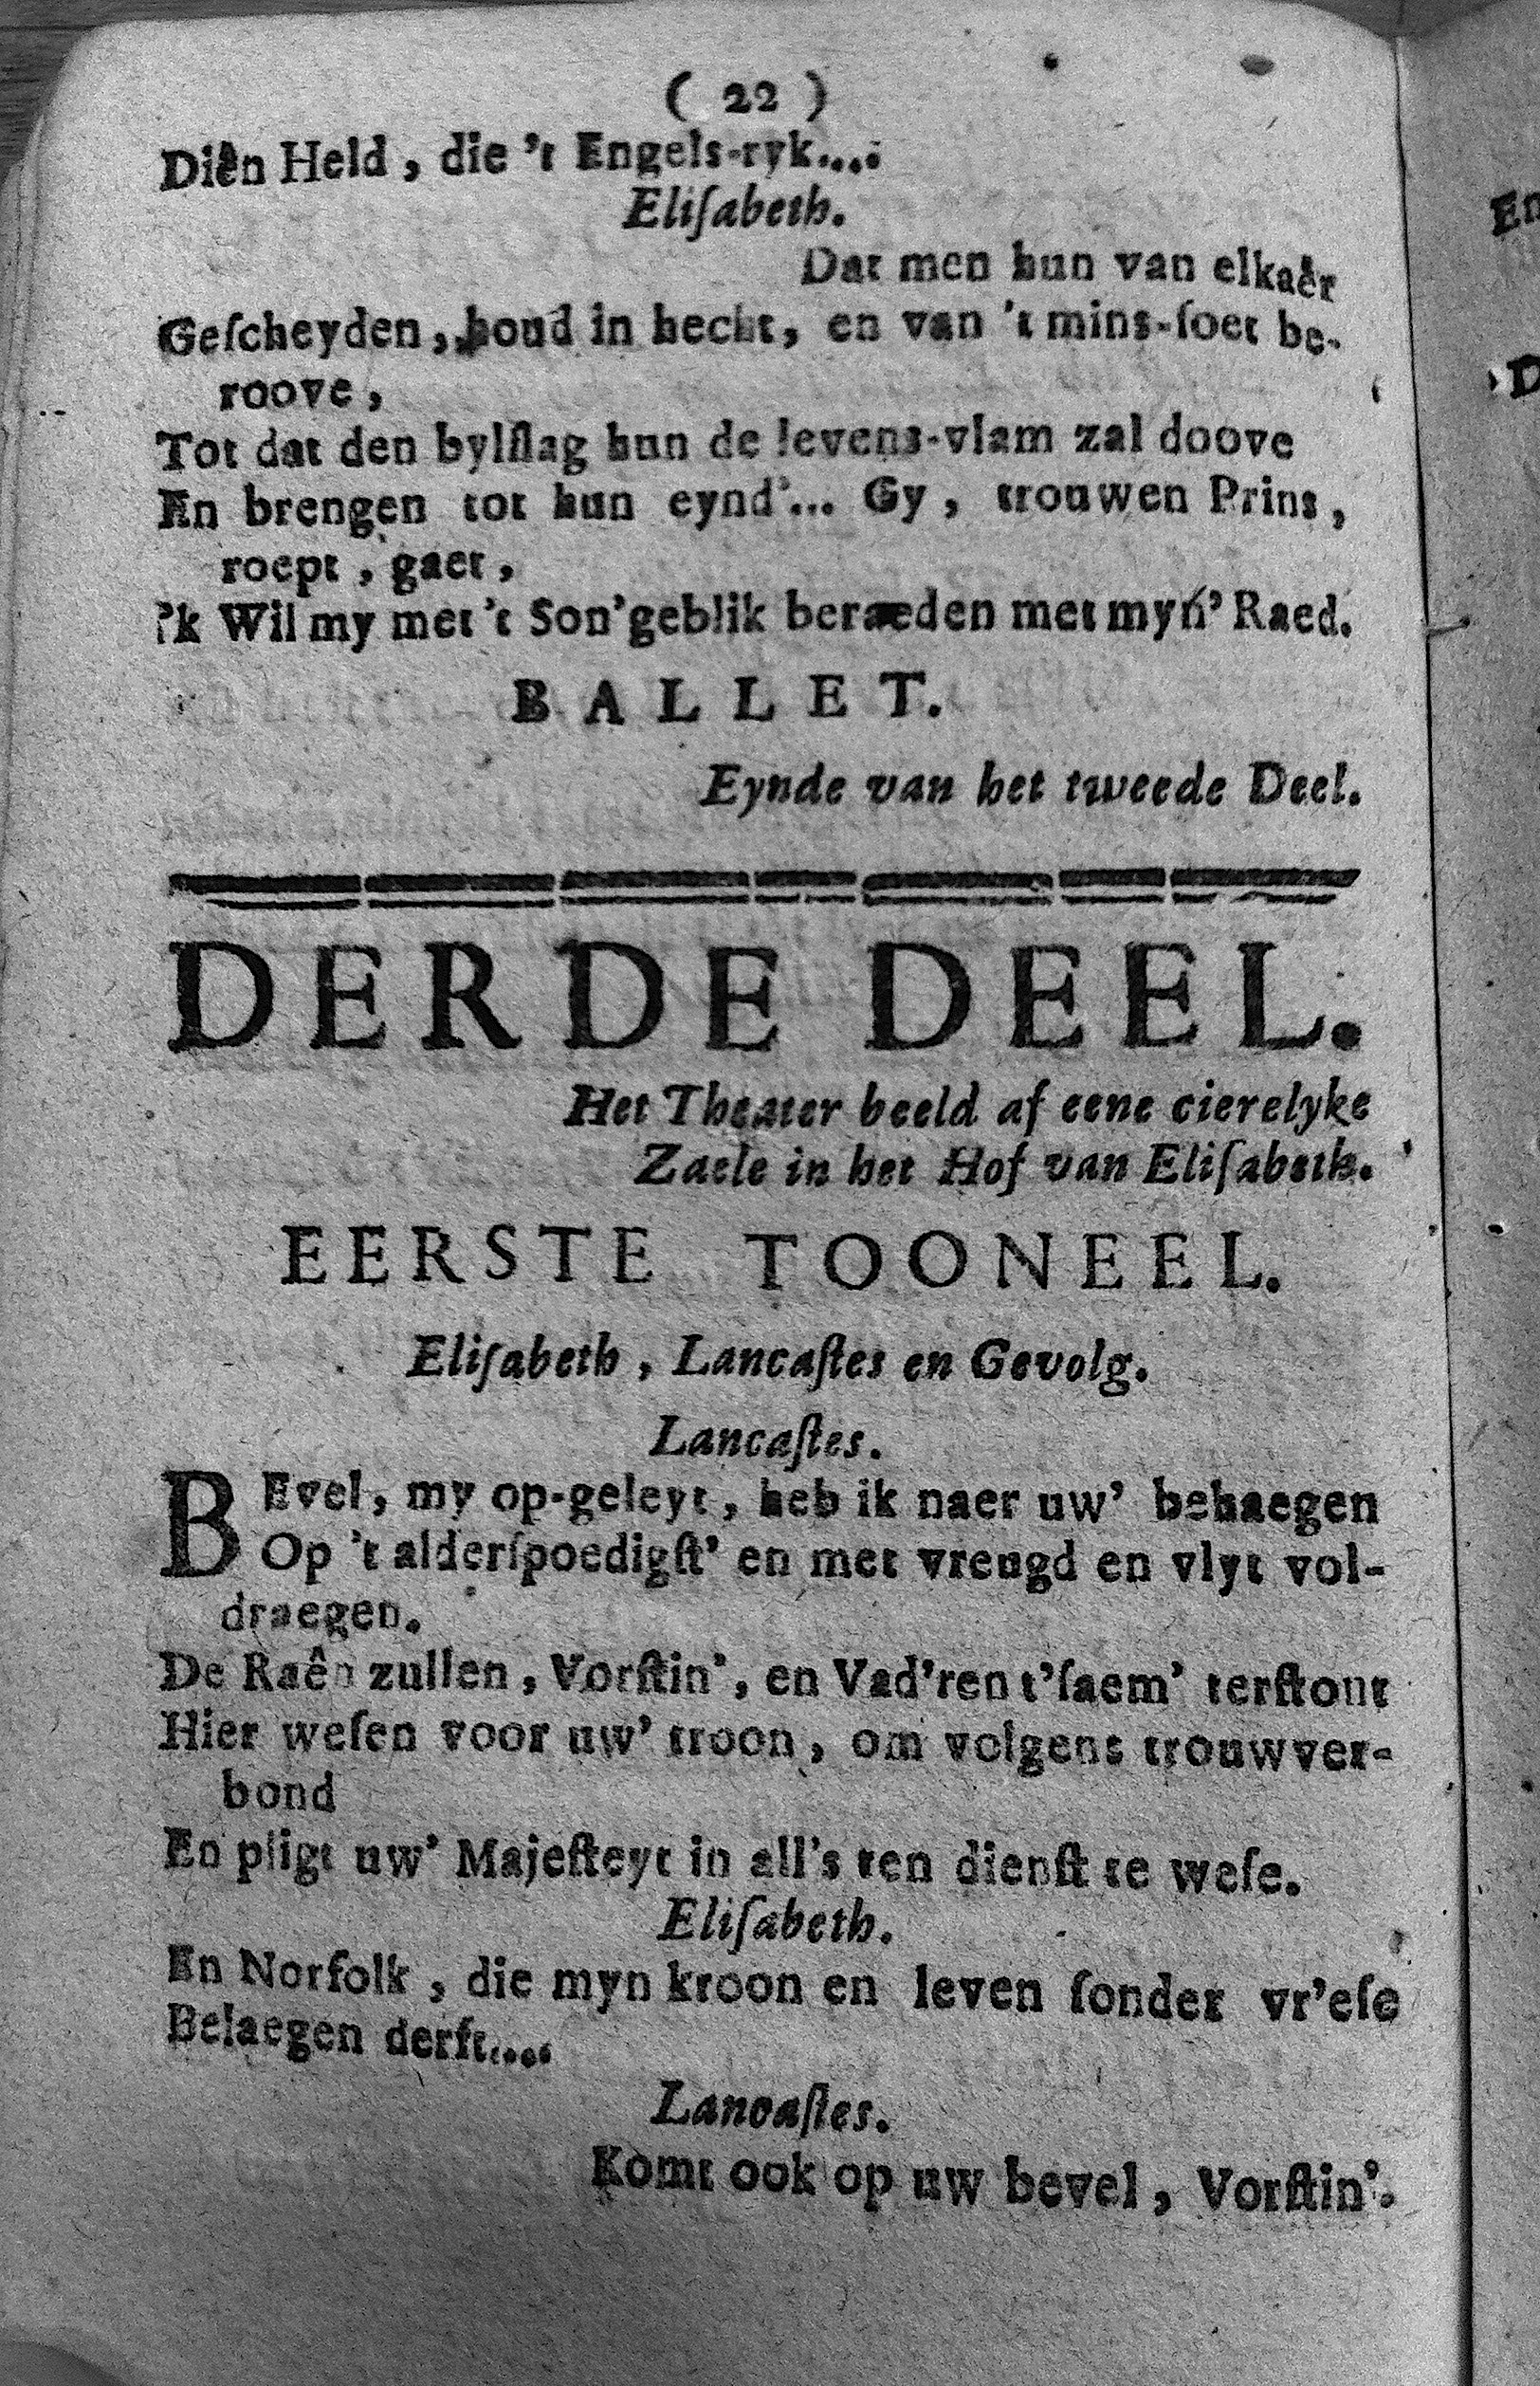 ( 22 )
Diên Held, die 't Engels-ryk....
Eliſabeth.
Dat men hun van elkaêr
Geſcheyden, houd in hecht, en van 't mins-ſoet be-
roove,
Tot dat den bylſlag hun de levens-vlam zal doove
En brengen tot hun eynd'... Gy, trouwen Prins,
roept, gaet,
'k Wil my met 't Son'geblik beraeden met myn' Raed.
BALLET.
Eynde van het tweede Deel.
DERDE DEEL.
Het Theater beeld af eene cierelyke
Zaele in het Hof van Eliſabeth.
EERSTE TOONEEL.
Eliſabeth, Lancaſtes en Gevolg.
Lancaſtes.
BEvel, my op-geleyt, heb ik naer uw' behaegen
Op 't alderſpoedigſt' en met vreugd en vlyt vol-
draegen.
De Raên zullen, Vorſtin', en Vad'ren t'ſaem' terſtont
Hier weſen voor uw' troon, om volgens trouwver-
bond
En pligt uw' Majeſteyt in all's ten dienſt te weſe.
Eliſabeth.
En Norfolk, die myn kroon en leven ſonder vr'eſe
Belaegen derft....
Lancaſtes.
Komt ook op uw bevel, Vorſtin'.